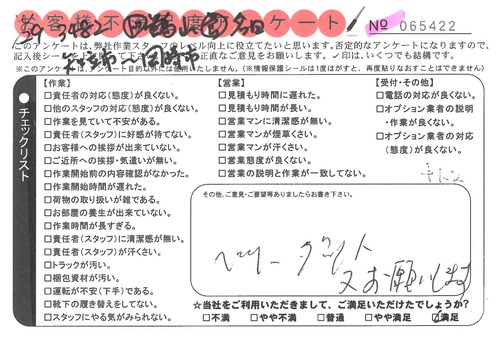 アンケート
No 065422
このアンケートは、弊社作業スタッフのレベル向上に役立てたいと思います。否定的なアンケートになりますので、
正直なご意見をお願いします。✓印は、いくつでも結構です。
※このアンケートは、アンケート目的以外には使用いたしません。(※情報保護シールは1度はがすと、再度貼りなおすことはできません)
チェックリスト
【作業】
□責任者の対応(態度)が良くない。
□他のスタッフの対応(態度)が良くない。
□作業を見ていて不安がある。
□責任者(スタッフ)に好感が持てない。
□お客様への挨拶が出来ていない。
□ご近所への挨拶・気遣いが無い。
□作業開始前の内容確認がなかった。
□作業開始時間が遅れた。
□荷物の取り扱いが雑である。
□お部屋の養生が出来ていない。
□作業時間が長すぎる。
□責任者(スタッフ)に清潔感が無い。
□責任者(スタッフ)が汗くさい。
□トラックが汚い。
□梱包資材が汚い。
□運転が不安(下手)である。
□靴下の履き替えをしてない。
□スタッフにやる気がみられない。
【営業】
□見積もり時間に遅れた。
□見積もり時間が長い。
□営業マンに清潔感が無い。
□営業マンが煙草くさい。
□営業マンが汗くさい。
□営業態度が良くない。
□営業の説明と作業が一致してない。
【受付・その他】
□電話の対応が良くない。
□オプション業者の説明
・作業が良くない。
□オプション業者の対応
(態度)が良くない。
その他、ご意見・ご要望等ありましたらお書き下さい。
又お願いします
☆当社をご利用いただきまして、ご満足いただけたでしょうか?
□不満 □やや不満 □普通 □やや満足 ☑満足